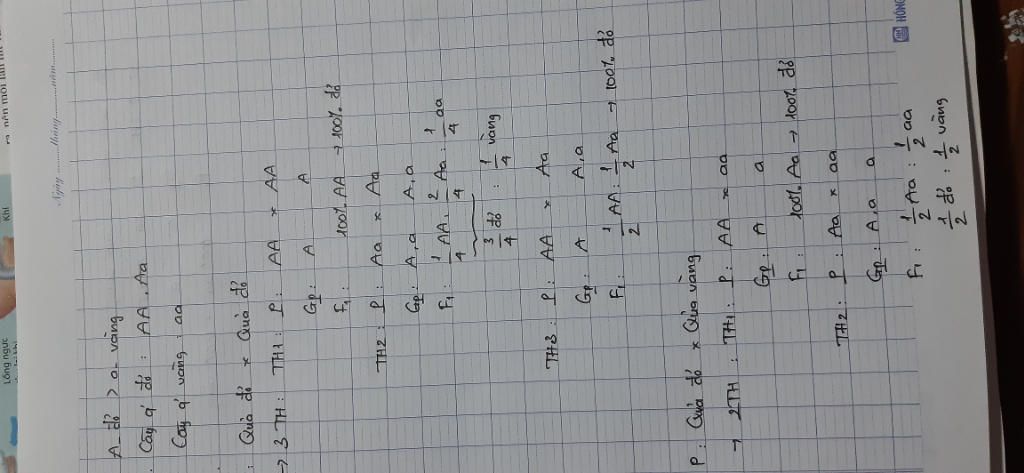 Ngày ........ tháng ........ năm ........
A đỏ > a vàng
Cây q' đỏ : AA, Aa
Cây q' vàng : aa
: Quả đỏ × Quả đỏ
→ 3 TH : TH1 : P : AA × AA
GP : A A
F1 : 100% AA → 100% đỏ
TH2 : P : Aa × Aa
GP : A, a A, a
F1 : 1/4 AA, 2/4 Aa : 1/4 aa
3/4 đỏ : 1/4 vàng
TH3 : P : AA × Aa
GP : A A, a
F1 : 1/2 AA : 1/2 Aa → 100% đỏ
P : Quả đỏ × Quả vàng
→ 2TH : TH1 : P : AA × aa
GP : A a
F1 : 100% Aa → 100% đỏ
TH2 : P : Aa × aa
GP : A, a a
F1 : 1/2 Aa : 1/2 aa
1/2 đỏ : 1/2 vàng
HỒNG
Lồng ngực
Khí